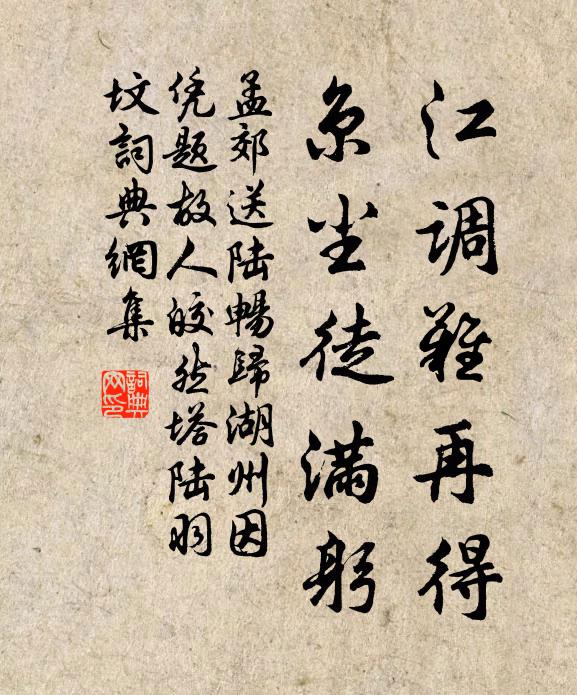 江调难再得
京尘徒满躬
孟郊送陆暢歸湖州因
凭题故人皎然塔陆羽
坟詞典網集
詞典
网印